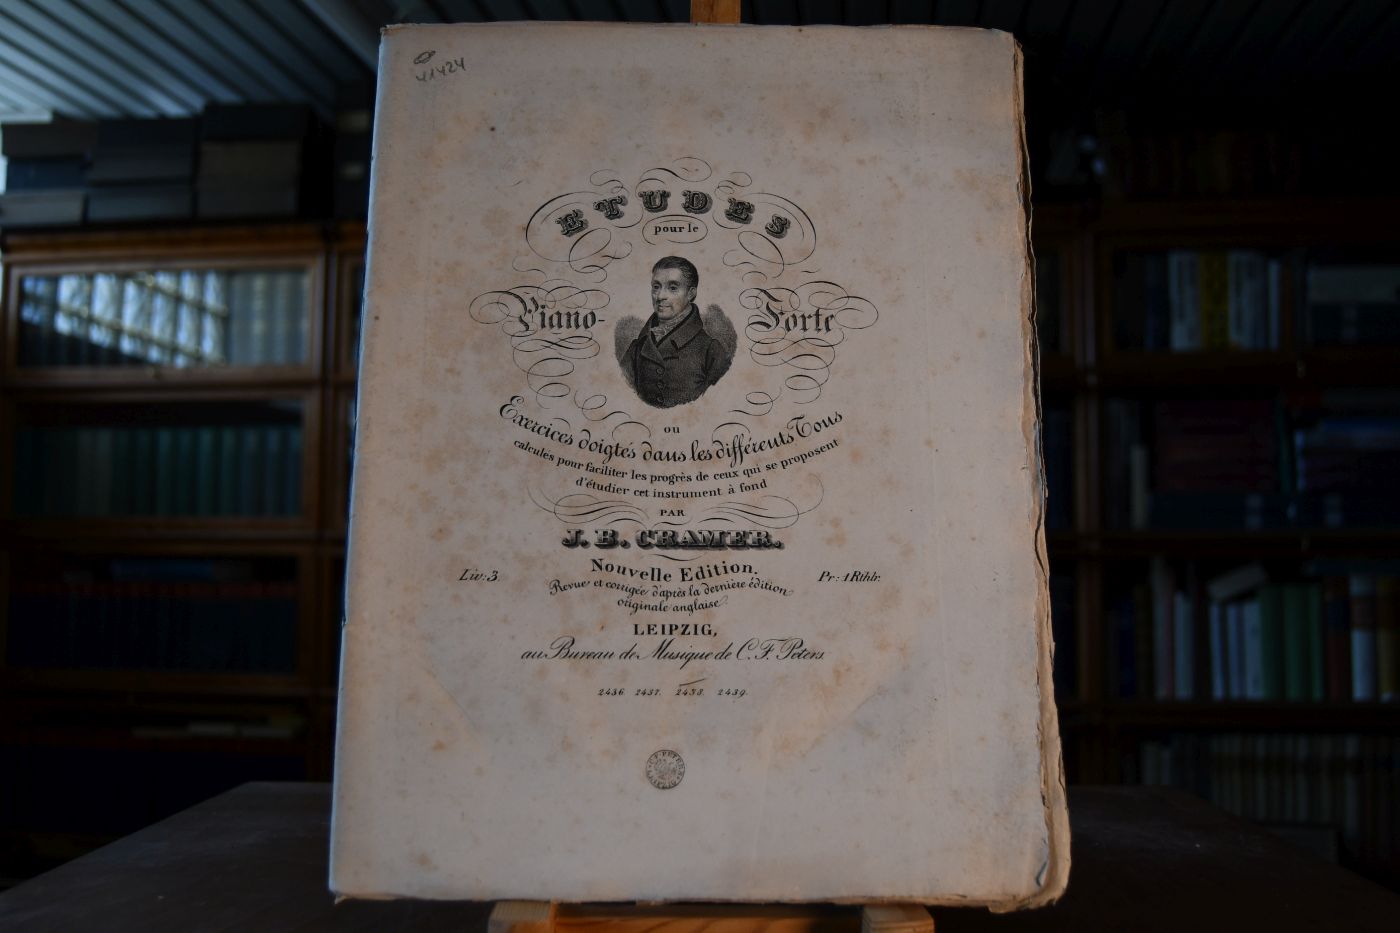 41424
ETUDES
pour le
Piano-Forte
ou
Exercices doigtés dans les différents Tous
calculés pour faciliter les progrès de ceux qui se proposent
d'étudier cet instrument à fond
PAR
J. B. CRAMER.
Nouvelle Edition.
Liv: 3.
Pr: 1 Rthlr.
Revue et corrigée d'après la dernière édition
originale anglaise
LEIPZIG,
au Bureau de Musique de C. F. Peters.
2436. 2437. 2438. 2439.
C. F. PETERS LEIPZIG